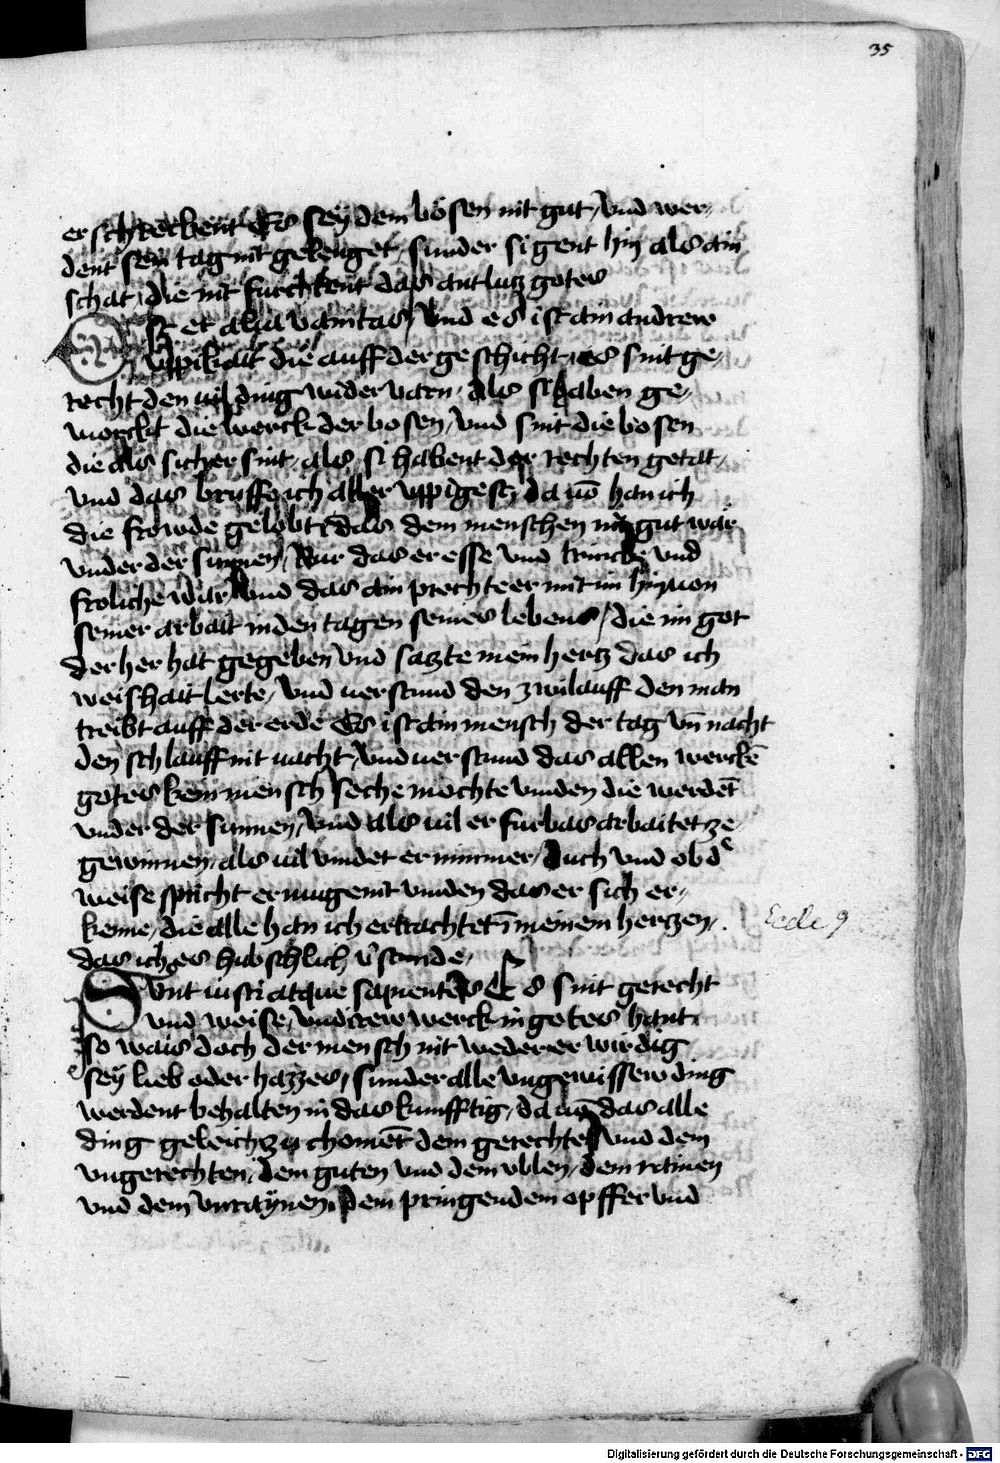 35
er schreckent Es sey dem bosen nit gut / vnd wer,
dent sein tag nit gelenget / sunder si gent hin als ain
schat / die nit furchtent das antlutz gotes
Est et alia vanitas / vnd es ist ain andrew
vppikait die auff der geschicht / es sint ge,
recht den vil ding wider varn / als si haben ge,
worckt die werck der bosen / vnd sint die bosen
die als sicher sint / als si habent der rechten getat /
vnd das bruffe ich aller vppigest / da uō han ich
die frowde gelobt / das dem menschen nit gut wär
vnder der sunnen / Nur das er esse vnd trincke vnd
frolich wär / vnd das ain prechte er mit im hin von
seiner arbait in den tagen seines lebens / die im got
der her hat gegeben vnd satzte mein hertz das ich
weishait lerte / vnd uerstund den zwilauff den man
treibt auff der erde Es ist ain mensch der tag vn̄ nacht
den schlauff nit uacht / vnd uerstund das allen werckē
gotes kein mensch sache mochte vinden die werdēt
vnder der sunnen / vnd als uil er furbas arbaitet ze
gewinnen / als uil vindet er nimmer / Auch vnd ob der
weise spricht er mug emt vinden das er sich er,
kenne / die alle han ich ertrachtet ī meinem hertzen /.
Eccle 9
das ich es hubschlich v̄stande /
Sunt iusti atque sapientes Es sint gerecht
vnd weise / vnd irew werck in gotes hant
so wais doch der mensch nit weder er wirdig
sey lieb oder hazzes / sunder alle vngewissew ding
werdent behalten in das kunfftig / da uō das alle
ding geleich zu chomēt dem gerechten vnd dem
vngerechten / dem guten vnd dem vblen / dem rainen
vnd dem vnraynen / dem pringendem opffer vnd
Digitalisierung gefördert durch die Deutsche Forschungsgemeinschaft - DFG